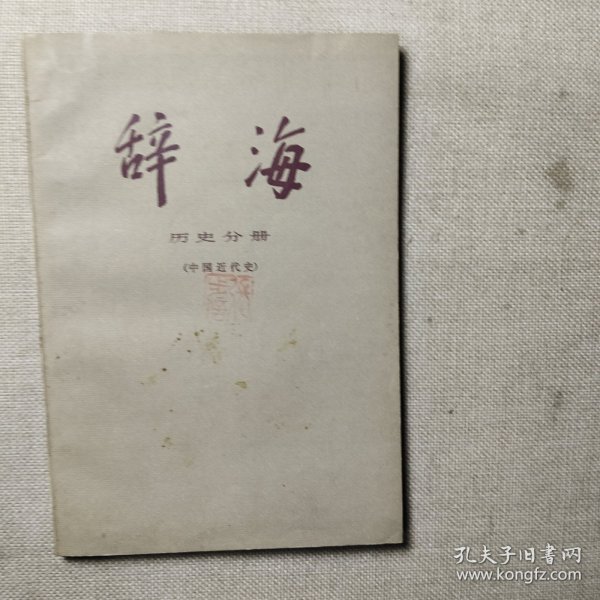 辞海
历史分册
《中国近代史》
孔夫子旧書网
www.kongfz.com